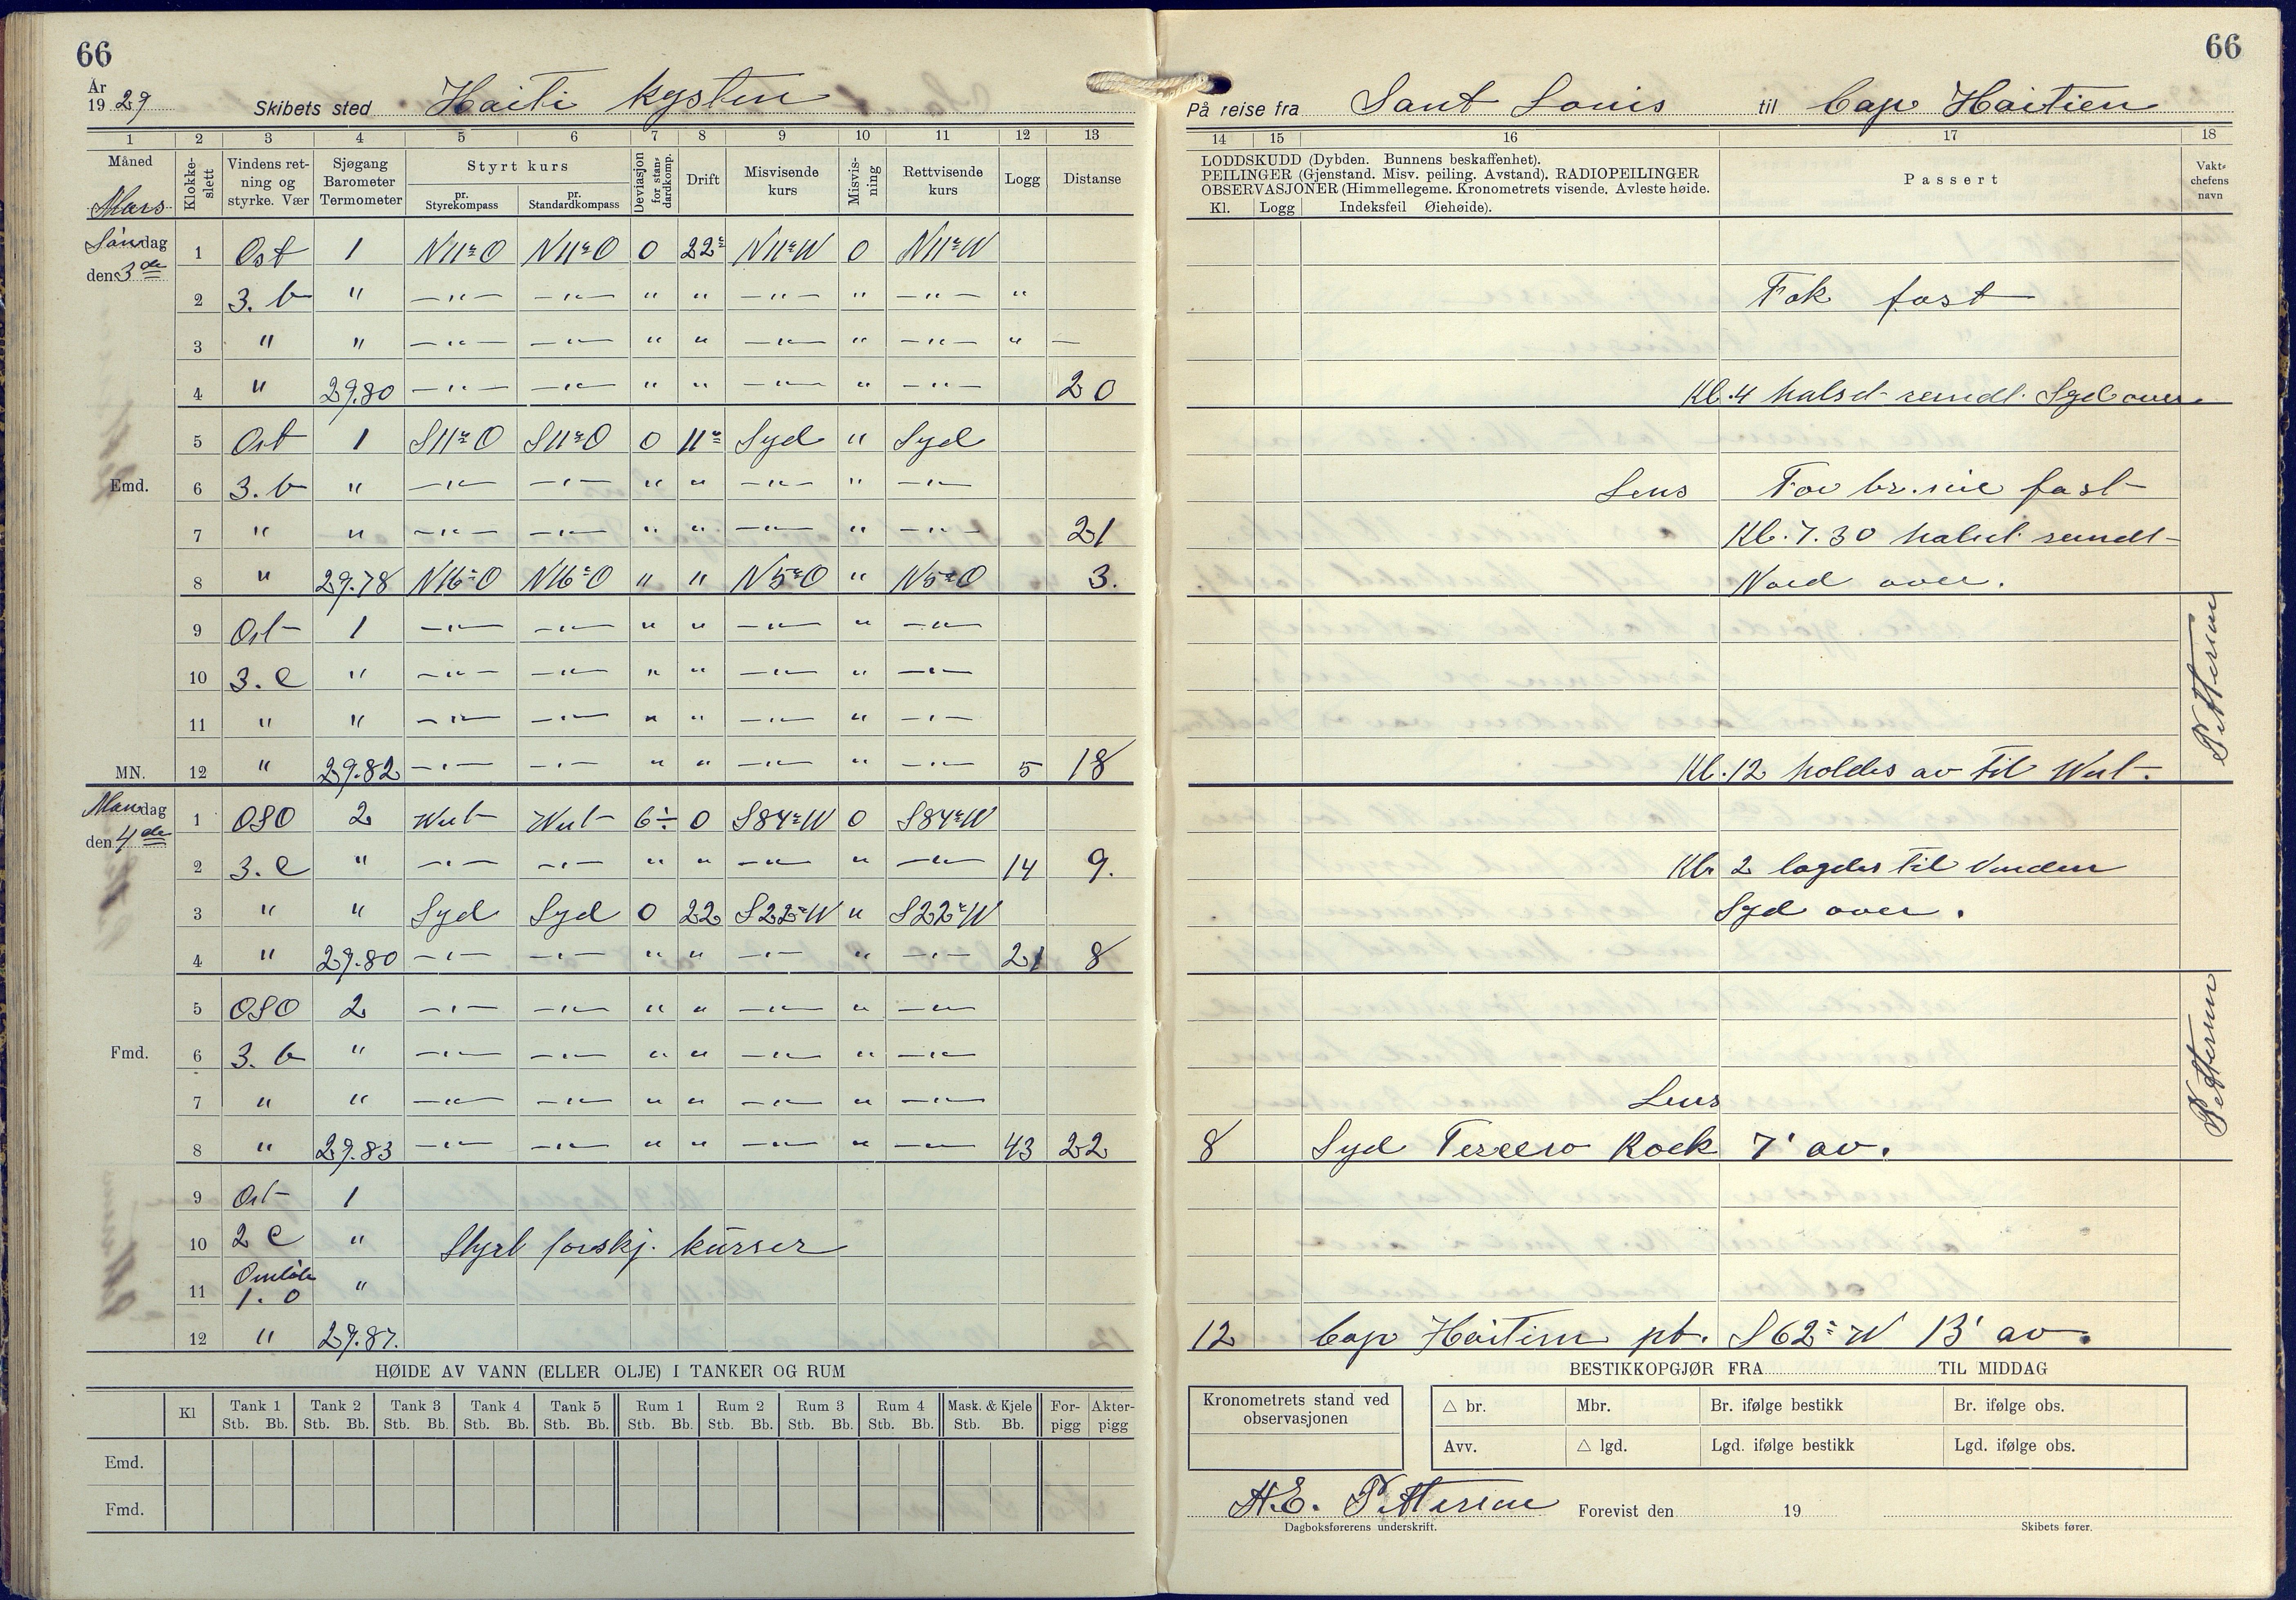 66
66
År
19 29 Skibets sted Haiti kysten
På reise fra Sant Louis til Cap Haitien
1 2 3 4 5 6 7 8 9 10 11 12 13
14 15 16 17 18
Måned
Mars
Klokke-
slett
Vindens ret-
ning og
styrke. Vær
Sjøgang
Barometer
Termometer
Styrt kurs
pr.
Styrekompass
pr.
Standardkompass
Deviasjon
for stan-
dardkomp.
Drift
Misvisende
kurs
Misvis-
ning
Rettvisende
kurs
Logg
Distanse
LODDSKUDD (Dybden. Bunnens beskaffenhet).
PEILINGER (Gjenstand. Misv. peiling. Avstand). RADIOPEILINGER
OBSERVASJONER (Himmellegeme. Kronometrets visende. Avleste høide.
Kl. Logg Indeksfeil Øiehøide).
Passert
Vakt-
chefens
navn
Søndag
den 3de
1 Ost 1 N11°O N11°O 0 22° N11°W 0 N11°W
2 3. b " — " — — " — " " — " — " — " — "
Fok fast
3 " " — " — — " — " " — " — " — " — " —
4 " 29.80 — " — — " — " " — " — " — " — 20
Kl. 4 halsd rundt Syd over
5 Ost 1 S11°O S11°O 0 11° Syd " Syd
Emd.
6 3. b " — " — — " — " " — " — " — " —
Lens For br. seil fast
7 " " — " — — " — " " — " — " — " — 21
Kl. 7.30 halsd rundt
8 " 29.78 N16°O N16°O " " N5°O " N5°O 3.
Nord over.
9 Ost 1 — " — — " — " " — " — " — " —
10 3. C " — " — — " — " " — " — " — " —
11 " " — " — — " — " " — " — " — " —
MN. 12 " 29.82 — " — — " — " " — " — " — " — 5 18
Kl. 12 holdes av til West.
Pettersen
Mandag
den 4de
1 OSO 2 West West 6÷ 0 S84°W 0 S84°W
2 3. C " — " — — " — " " — " — " — " — 14 9.
Kl. 2 lagdes til Vinden
3 " " Syd Syd 0 22 S22°W " S22°W
Syd over.
4 " 29.80 — " — — " — " " — " — " — " — 21 8
5 OSO 2 — " — — " — " " — " — " — " —
Fmd.
6 3. b " — " — — " — " " — " — " — " —
7 " " — " — — " — " " — " — " — " —
Lens
8 " 29.83 — " — — " — " " — " — " — " — 43 22
8 Syd Tercero Rock 7' av.
Pettersen
9 Ost 1
10 2 C "
Styrt forskj. kurser
11 Omløb "
1. 0
12 " 29.87.
12 Cap Haitien pb. S62°W 13' av.
HØIDE AV VANN (ELLER OLJE) I TANKER OG RUM
Kl Tank 1 Tank 2 Tank 3 Tank 4 Tank 5 Rum 1 Rum 2 Rum 3 Rum 4 Mask. & Kjele For- Akter-
Stb. Bb. Stb. Bb. Stb. Bb. Stb. Bb. Stb. Bb. Stb. Bb. Stb. Bb. Stb. Bb. Stb. Bb. Stb. Bb. pigg pigg
Emd.
Fmd.
BESTIKKOPGJØR FRA TIL MIDDAG
Kronometrets stand ved
observasjonen
△ br. Mbr. Br. ifølge bestikk Br. ifølge obs.
Avv. △ lgd. Lgd. ifølge bestikk Lgd. ifølge obs.
H.E. Pettersen Forevist den 19
Dagboksførerens underskrift.
Skibets fører.